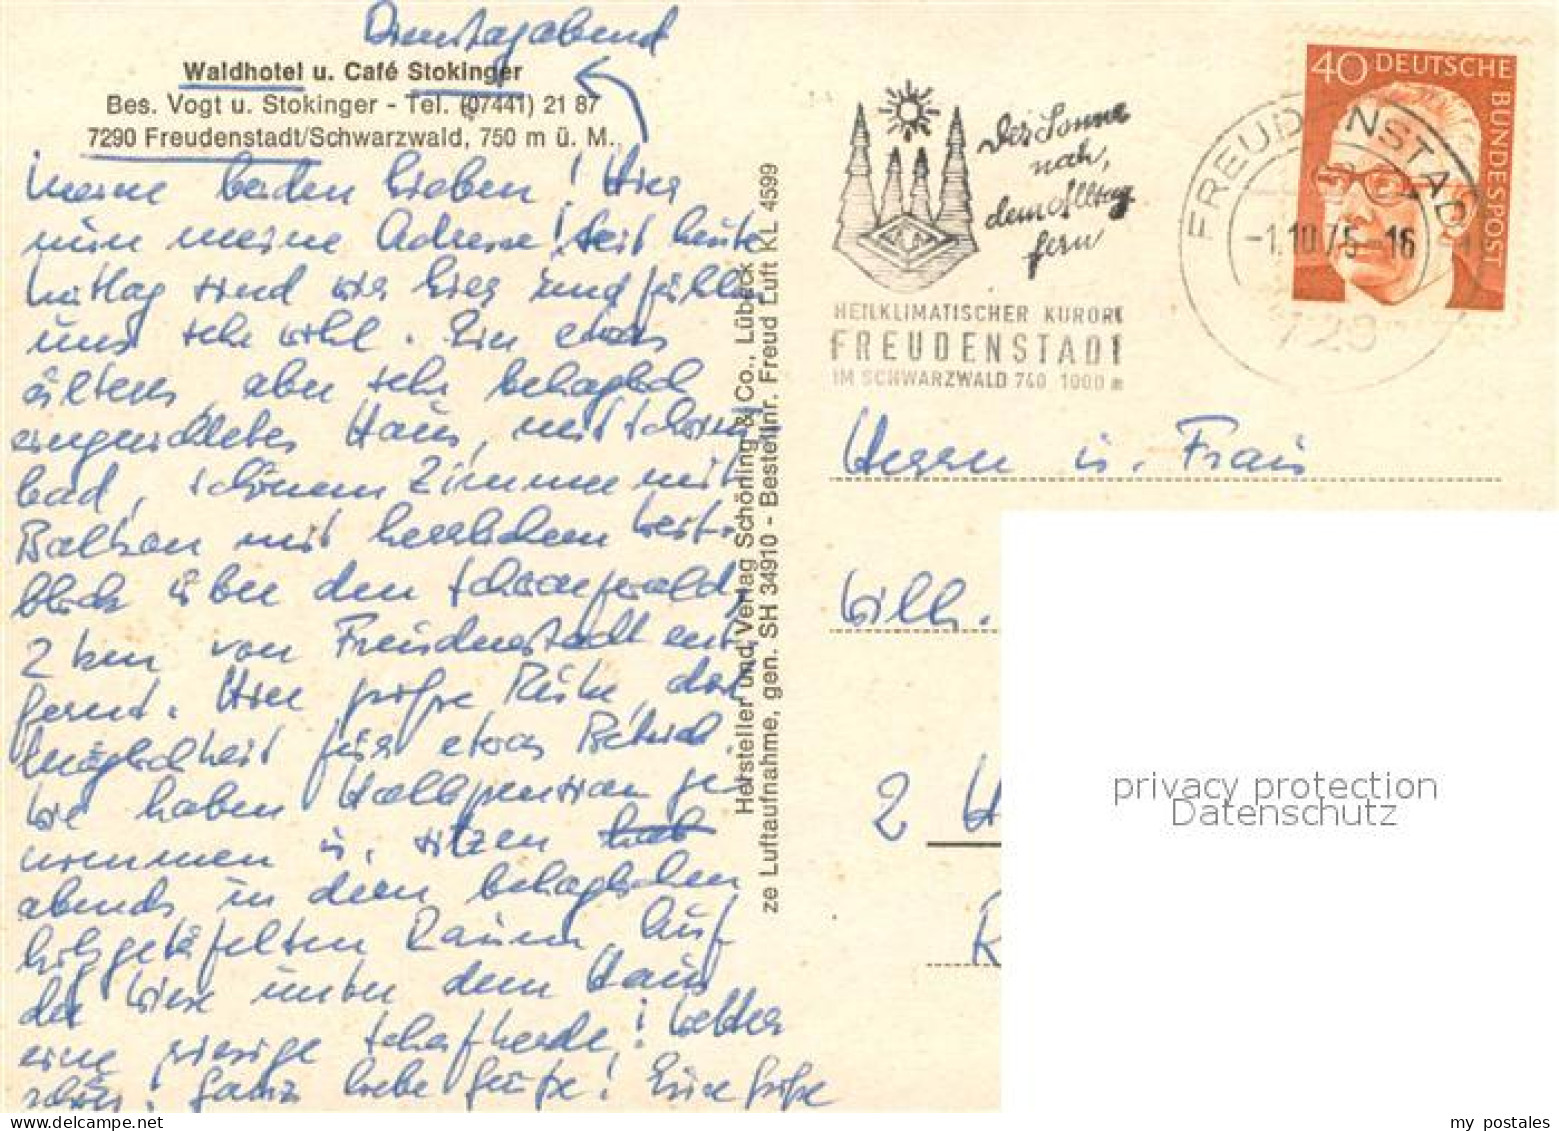 Dienstagabend
Waldhotel u. Café Stokinger
Bes. Vogt u. Stokinger - Tel. (07441) 21 87
7290 Freudenstadt/Schwarzwald, 750 m ü. M.
Meine beiden Lieben! Hier
nun meine Adresse! Seit heute
Mittag sind wir hier und fühlen
uns sehr wohl. Ein etwas
älteres, aber sehr behaglich
eingerichtetes Haus, mit Schwimm
bad, schönem Zimmer mit
Balkon mit herrlichem Weit-
blick über den Schwarzwald,
2 km von Freudenstadt ent-
fernt. Hier große Ruhe, dort
Möglichkeit für etwas Betrieb.
Wir haben Halbpension ge-
nommen u. sitzen
abends in dem behaglichen
holzgetäfelten Raum. Auf
der Wiese unter dem Haus
eine riesige Schafherde! Wetter
schön! Ganz liebe Grüße! Eure
Hersteller und Verlag Schöning & Co., Lübeck KL 4599
ze Luftaufnahme, gen. SH 34910 - Bestellnr. Freud Luft
Der Sonne
nah,
dem Alltag
fern
HEILKLIMATISCHER KURORT
FREUDENSTADT
IM SCHWARZWALD 740 1000 m
FREUDENSTADT
-1.10.75-16
729
40 DEUTSCHE
BUNDESPOST
Herrn u. Frau
Wilh.
2 H
R
privacy protection
Datenschutz
my postales